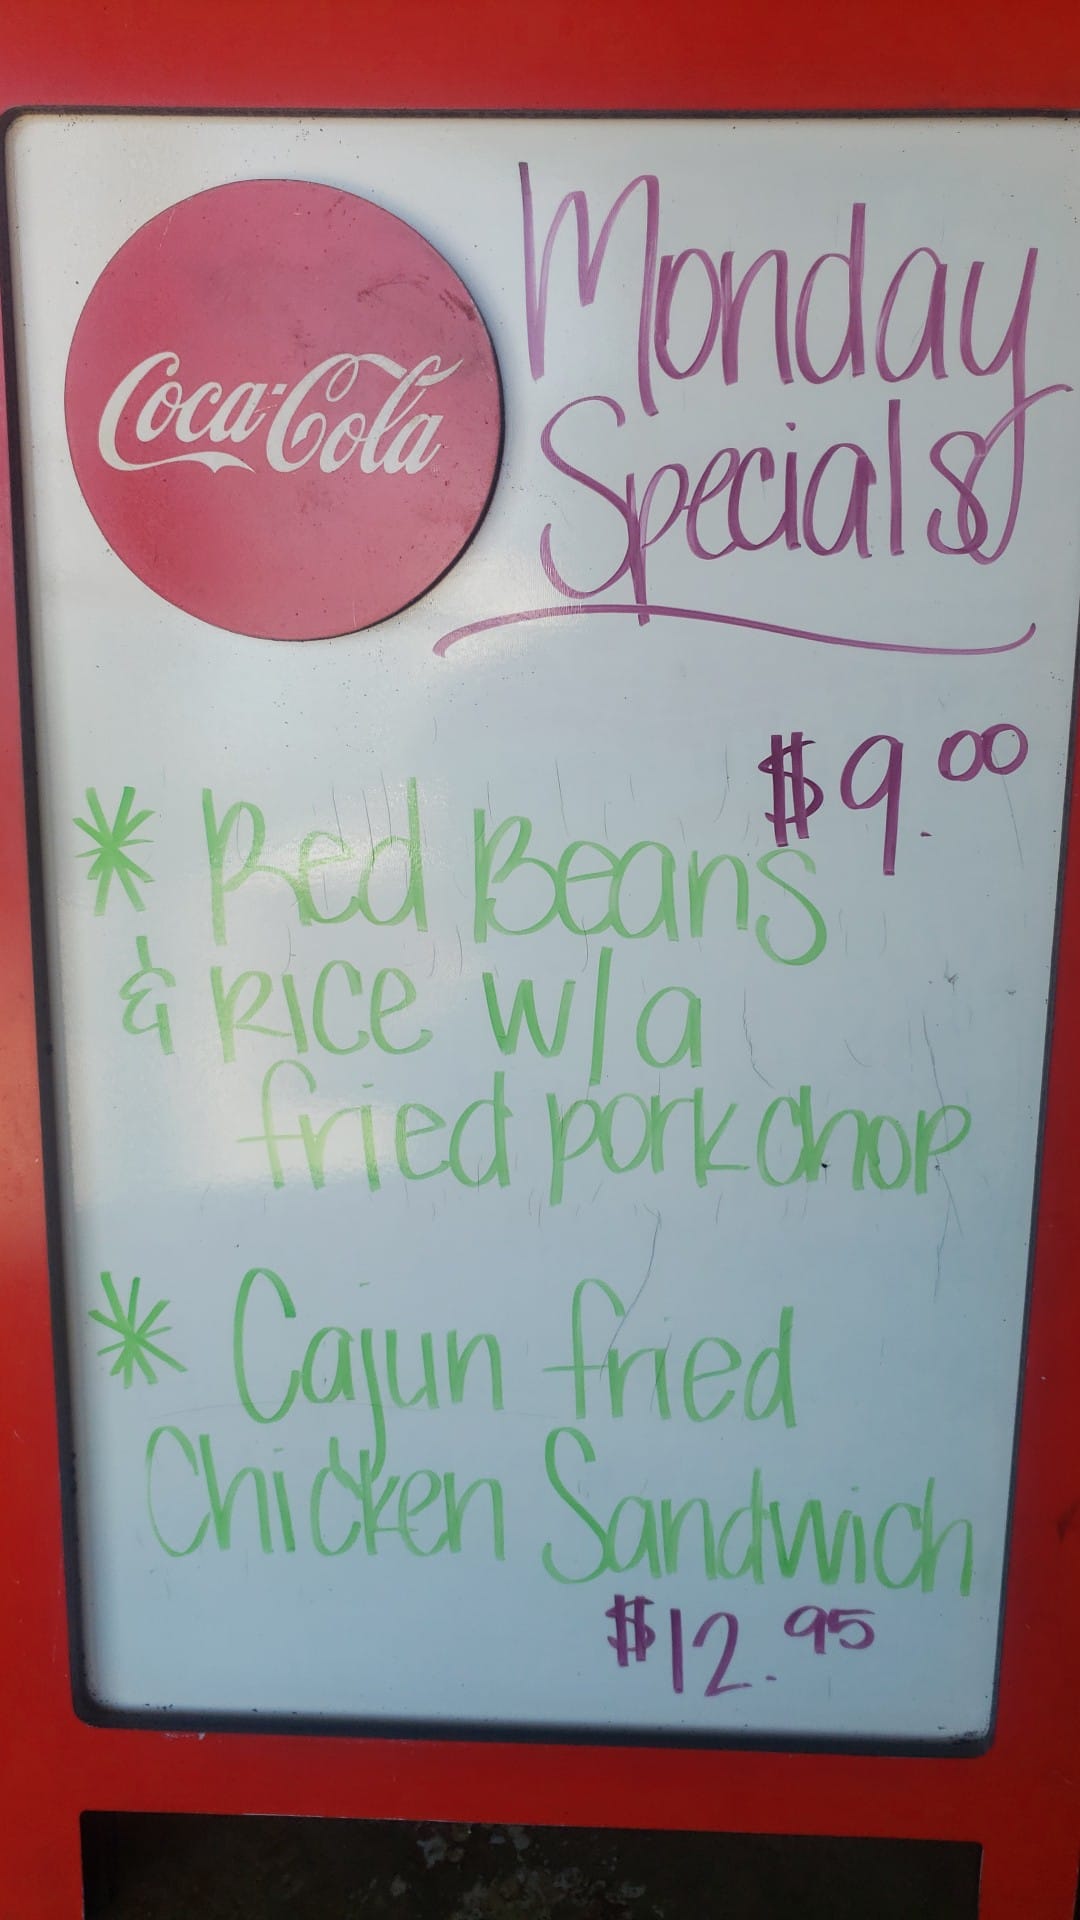 Coca-Cola
Monday
Specials
$9.00
* Red Beans
& Rice w/a
fried pork chop
* Cajun fried
Chicken Sandwich
$12.95